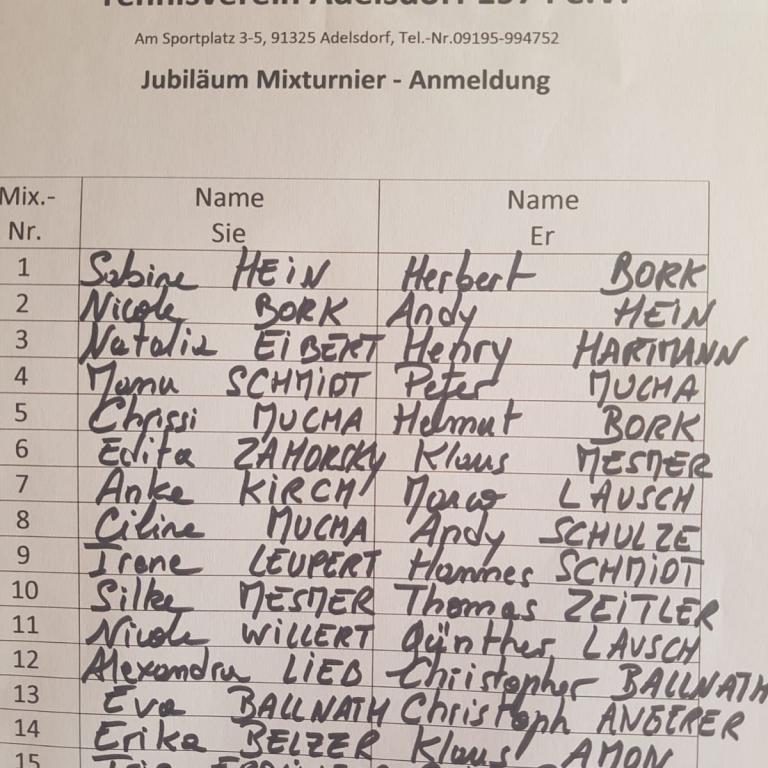 Tennisverein Adelsdorf 1974 e.V.
Am Sportplatz 3-5, 91325 Adelsdorf, Tel.-Nr.09195-994752
Jubiläum Mixturnier - Anmeldung
Mix.- Name Name
Nr. Sie Er
1 Sabine HEIN Herbert BORK
2 Nicole BORK Andy HEIN
3 Natalie EIBERT Henry HARTMANN
4 Manu SCHMIDT Peter MUCHA
5 Chrissi MUCHA Helmut BORK
6 Edita ZAHORSKY Klaus MESMER
7 Anke KIRCH Marco LAUSCH
8 Ciline MUCHA Andy SCHULZE
9 Irene LEUPERT Hannes SCHMIDT
10 Silke MESMER Thomas ZEITLER
11 Nicole WILLERT Günther LAUSCH
12 Alexandra LIEB Christopher BALLNATH
13 Eva BALLNATH Christoph ANGERER
14 Erika BELZER Klaus AMON
15